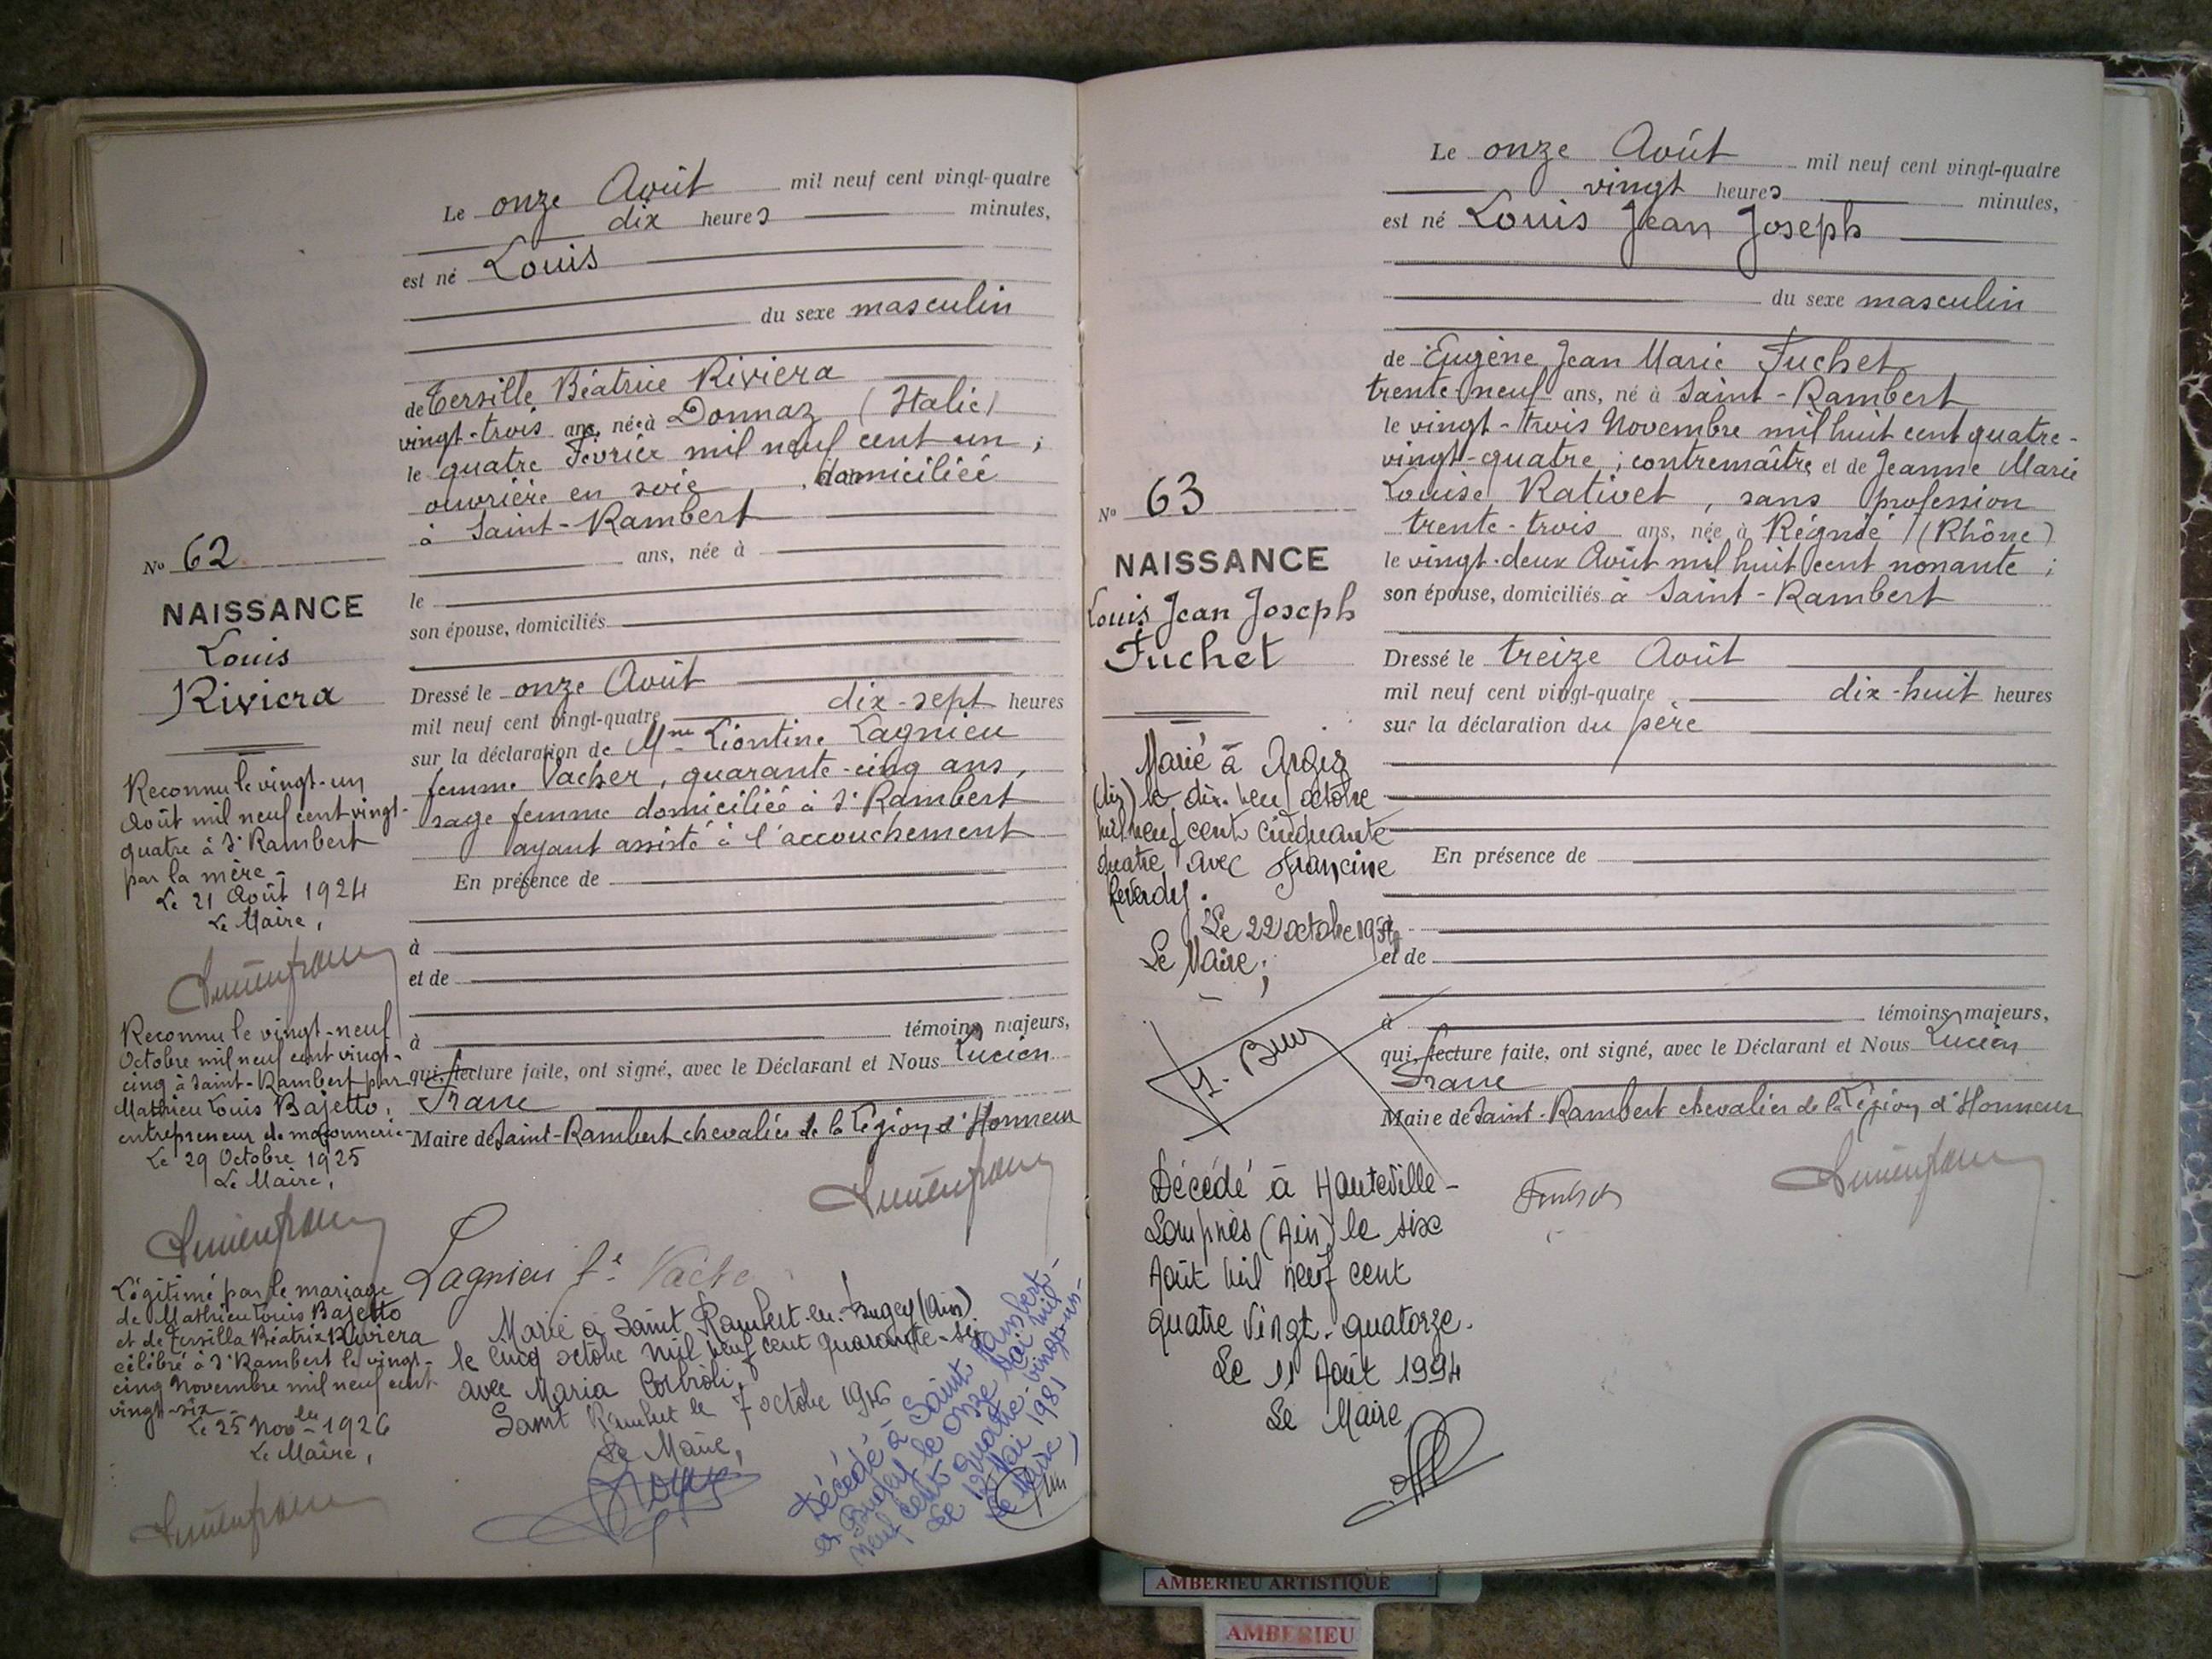 Le onze Août mil neuf cent vingt-quatre
dix heures minutes,
est né Louis
du sexe masculin
de Tersille Béatrice Riviera
vingt-trois ans, née à Donnaz (Italie)
le quatre Février mil neuf cent un ;
ouvrière en soie, domiciliée
à Saint-Rambert
ans, née à
le
son épouse, domiciliés
Dressé le onze Août
mil neuf cent vingt-quatre dix-sept heures
sur la déclaration de Mme Léontine Lagnieu
femme Vacher, quarante-cinq ans,
sage femme domiciliée à St Rambert
ayant assisté à l'accouchement
En présence de
à
et de
à témoins majeurs,
qui, lecture faite, ont signé, avec le Déclarant et Nous Lucien
Franc
Maire de Saint-Rambert chevalier de la Légion d'Honneur
No 62
NAISSANCE
Louis
Riviera
Reconnu le vingt-un
Août mil neuf cent vingt-
quatre à St Rambert
par la mère -
Le 21 Août 1924
Le Maire,
Reconnu le vingt-neuf
Octobre mil neuf cent vingt-
cinq à Saint-Rambert par
Mathieu Louis Bajetto,
entrepreneur de maçonnerie -
Le 29 Octobre 1925
Le Maire,
Légitimé par le mariage
de Mathieu Louis Bajetto
et de Tersilla Béatrix Riviera
célébré à St Rambert le vingt-
cinq Novembre mil neuf cent
vingt-six -
Le 25 Novbre 1926
Le Maire,
Lagnieu fe Vache
Marié à Saint Rambert-en-Bugey (Ain)
le cinq octobre mil neuf cent quarante-six
avec Maria
Saint Rambert le 7 octobre 1946
Le Maire,
Décédé à Saint Rambert-
en Bugey le onze Mai mil-
neuf cent quatre-vingt-un-
Le 12 Mai 1981
Le Maire,
Le onze Août mil neuf cent vingt-quatre
vingt heures minutes,
est né Louis Jean Joseph
du sexe masculin
de Eugène Jean Marie Fuchet
trente-neuf ans, né à Saint-Rambert
le vingt-trois Novembre mil huit cent quatre-
vingt-quatre ; contremaître et de Jeanne Marie
Louise Rativet, sans profession
trente-trois ans, née à Régnié (Rhône)
le vingt-deux Août mil huit cent nonante ;
son épouse, domiciliés à Saint-Rambert
Dressé le treize Août
mil neuf cent vingt-quatre dix-huit heures
sur la déclaration du père
En présence de
et de
à témoins majeurs,
qui, lecture faite, ont signé, avec le Déclarant et Nous Lucien
Franc
Maire de Saint-Rambert chevalier de la Légion d'Honneur
No 63
NAISSANCE
Louis Jean Joseph
Fuchet
Marié à Argis
(Ain) le dix-neuf octobre
mil neuf cent cinquante
quatre avec Francine
Reverdy.
Le 22 octobre 1954
Le Maire,
Décédé à Hauteville-
Lompnes (Ain) le six
Août mil neuf cent
quatre vingt-quatorze.
Le 11 Août 1994
Le Maire
Fuchet
AMBERIEU ARTISTIQUE
AMBERIEU